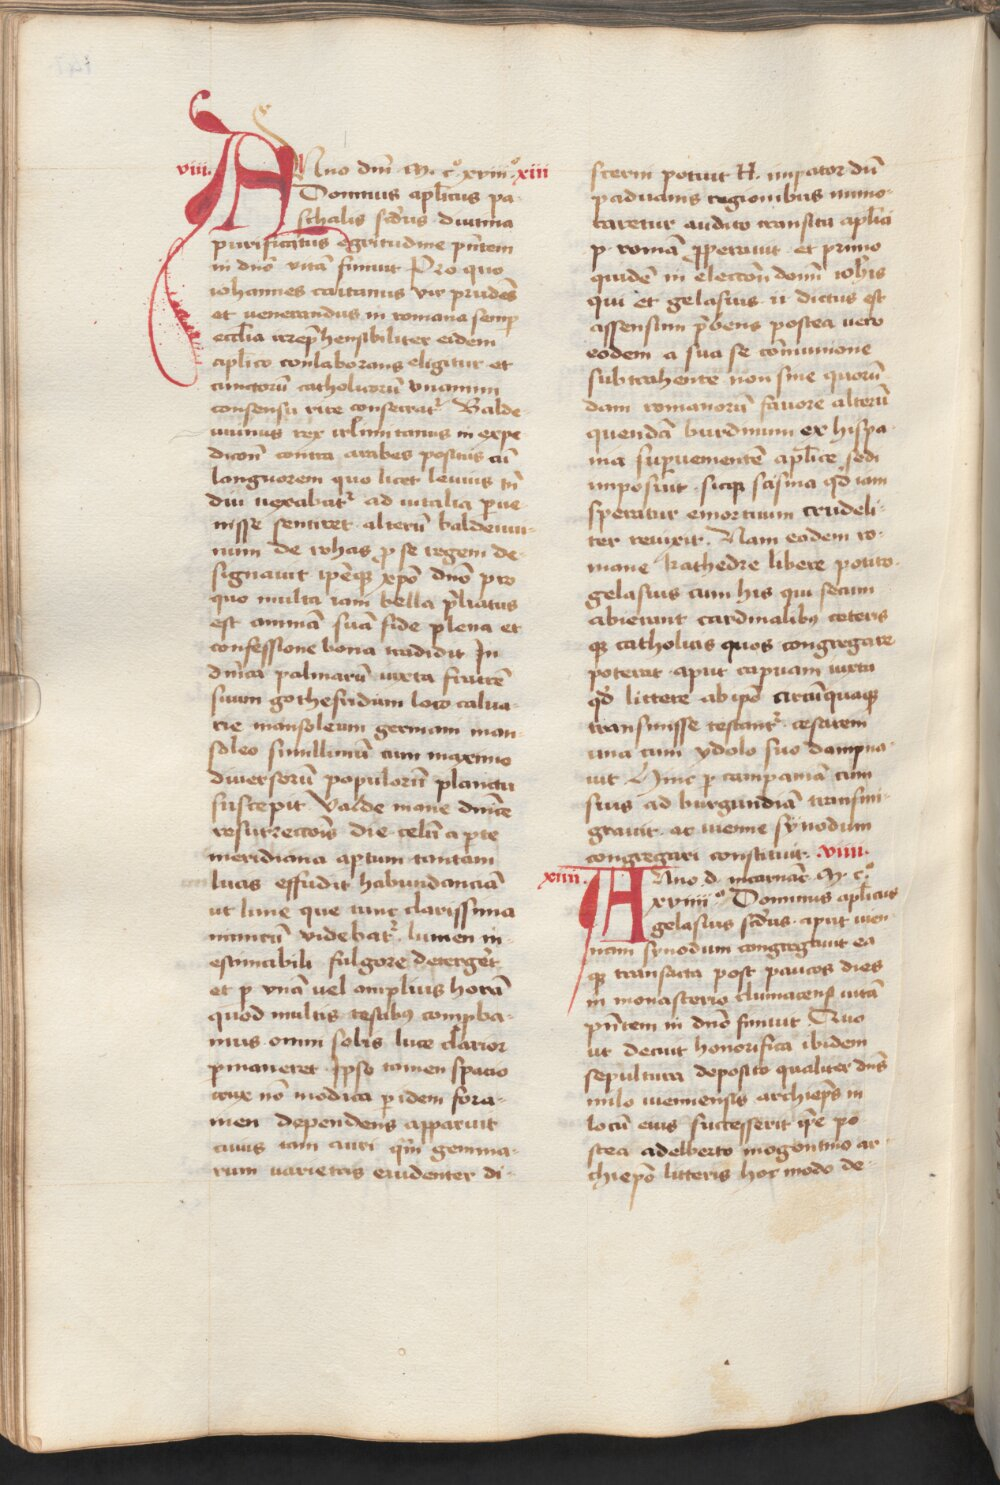 viii. ANno dn̄i M. c.º xviii.º xiii
Domnus apl̄icus pa-
schalis scd̄us diutina
purificatus egritudine pn̄tem
in dn̄o vitā finiuit Pro quo
iohannes caitanus vir prudēs
et venerandus in romana semp̄
eccl̄ia irrep̄hensibiliter eidem
apl̄ico conlaborans eligitur et
cunctorū catholicorū vnanimi
consensu rite consecrat᷑ Balde
uuinus rex irl̄imitanus in expe
dicōn̄ contra arabes positus cū
languorem quo licet leuius tn̄
diu vexabat᷑ ad vitalia p̄ue
nisse sentiret alterū baldeuui-
num de rohas p̱ se regem de-
signauit ip̄eq̄ xp̄o dn̄o pro
quo multa iam bella p̄liatus
est animā suā fide plena et
confessione bona tradidit In
dn̄ica palmarū iuxta fratrē
suum gothefridum loco calua-
rie mansoleum germani man-
soleo simillimū cum maximo
diuersorū populorū planctu
suscepit Valde mane dn̄ice
resurrectōis die celū a p̄te
meridiana aptum tantam
lucis effudit habundanciā
ut lune que tunc clarissima
mundū videbat᷑ lumen in-
estimabili fulgore deterger̄t
et p̱ vnā vel amplius horā
quod multis testibꝫ comp̱ba-
mus omni solis luce clarior
p̱maneret Ipso tamen spacio
crux nō modica p̱ idem fora-
men dependens apparuit
cuius iam auri q̄m gemma-
rum varietas euidenter di-
scerni potuit H. imp̱ator dū
paduanis regionibus mino-
raretur audito transitu apl̄ici
p̱ romā p̱perauit et primo
quidē in electōn̄ domī ioh̄is
qui et gelasius ii dictus est
assensum p̄bens postea vero
eodem a sua se cōmunione
subtrahente non sine quorū
dam romanorū fauore alterū
quendā burdinum ex hispa-
nia sup̱uenientē apl̄ice sedi
imposuit sicq̄ scisma qd̄ iam
speratur emortuum crudeli-
ter reuixit. Nam eodem ro-
mane kathedre libere potito
gelasius cum his qui secum
abierant cardinalibꝫ ceteris
q̄ catholicis quos congregare
poterat aput capuam iuxta
qd̄ littere ab ip̄o circūquaq̄
transmisse testant᷑ cesarem
una cum ydolo suo dampna-
uit Hinc p̱ campaniā cum
suis ad burgundiā transmi-
grauit ac vienne synodum
congregari constituit. viiii.
xiiii. ANno d. incarnac̄ M. c.º
xviiii.º Domnus apl̄icus
gelasius scd̄us aput vien-
nam synodum congregauit ea
q̄ transacta post paucos dies
in monasterio cluniacens̄ vitā
pn̄tem in dn̄o finiuit Quo
ut decuit honorifica ibidem
sepultura deposito qualiter dn̄s
milo viennensis archiep̄s in
locū eius successerit ip̄e po
stea adelberto mogontino ar-
chiep̄o litteris hoc modo de-